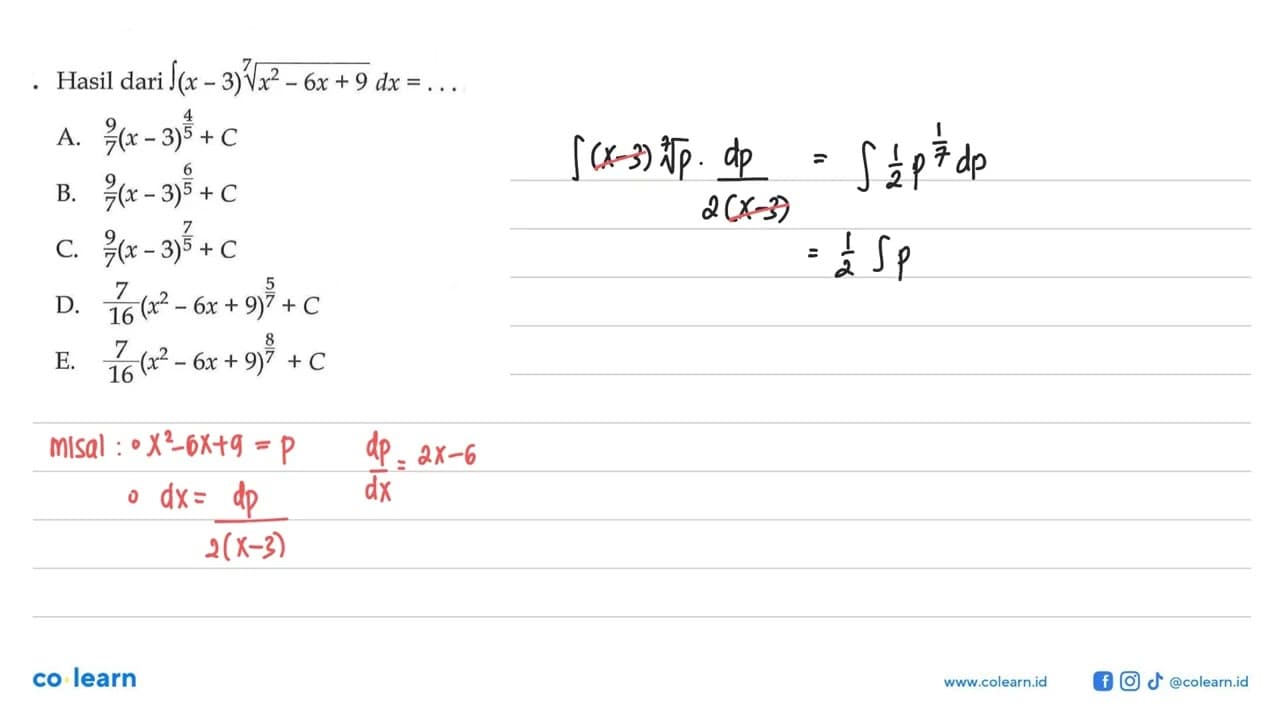 . Hasil dari ∫(x – 3)⁷√(x² – 6x + 9) dx = . . .
A. 9/7(x – 3)^(4/5) + C
B. 9/7(x – 3)^(6/5) + C
C. 9/7(x – 3)^(7/5) + C
D. 7/16(x² – 6x + 9)^(5/7) + C
E. 7/16(x² – 6x + 9)^(8/7) + C
∫(x-3) ⁷√p . dp/2(x-3) = ∫ 1/2 p^(1/7) dp
= 1/2 ∫ p
misal : • x²-6x+9 = p dp/dx = 2x-6
• dx = dp/2(x-3)
co·learn
www.colearn.id @colearn.id